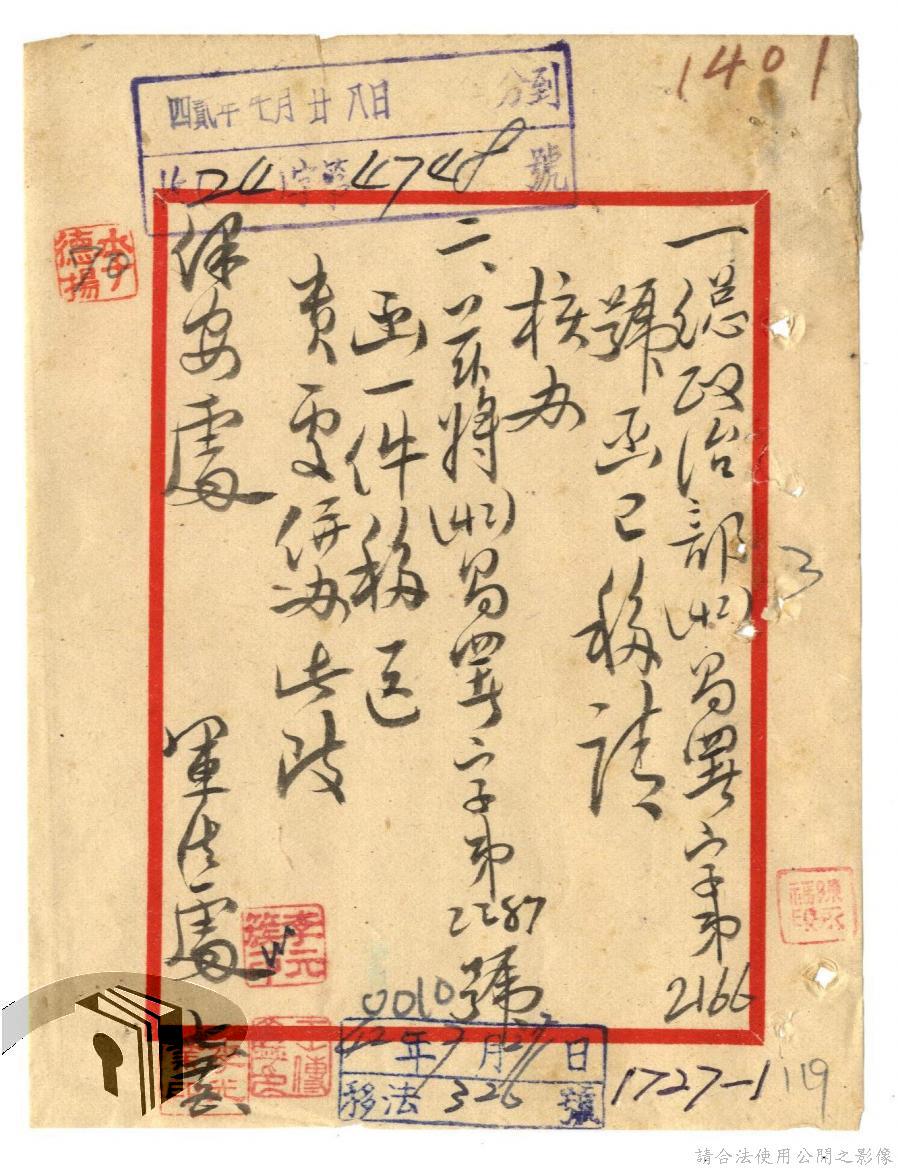 1401
四貳年七月廿八日
分到
字第4748號
李德揚
一、總政治部(42)昌署字第2166
號函已移請
核办
二、茲將(42)昌署字第2287號
函一件移送
貴處併办此致
保安處
軍法處
0010
42年7月27日
移法326號
1727-1
119
請合法使用公開之影像